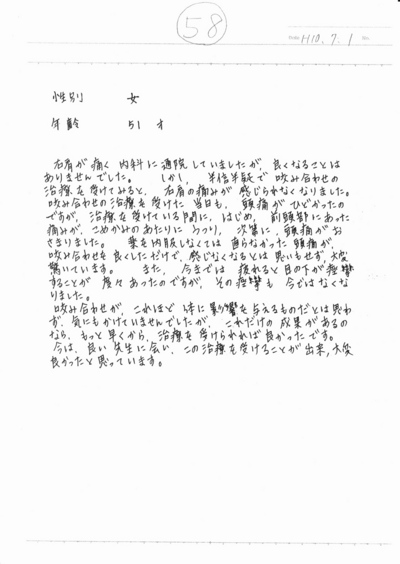 58
H10.7.1
性別 女
年齢 51才
右肩が痛く内科に通院していましたが、良くなることは
ありませんでした。しかし、半信半疑で咬み合わせの
治療を受けてみると、右肩の痛みが感じられなくなりました。
咬み合わせの治療を受けた当日も、頭痛がひどかったの
ですが、治療を受けている間に、はじめ、前頭部にあった
痛みが、こめかみのあたりにうつり、次第に、頭痛がお
さまりました。薬を内服しなくては直らなかった頭痛が、
咬み合わせを良くしただけで、感じなくなるとは思いもせず、大変
驚いています。また、今までは疲れると目の下が痙攣
することが度々あったのですが、その痙攣も今ではなくな
りました。
咬み合わせが、これほど体に影響を与えるものだとは思わ
ず、気にもかけていませんでしたが、これだけの成果があるの
なら、もっと早くから、治療を受けられれば良かったです。
今は、良い先生に会い、この治療を受けることが出来、大変
良かったと思っています。